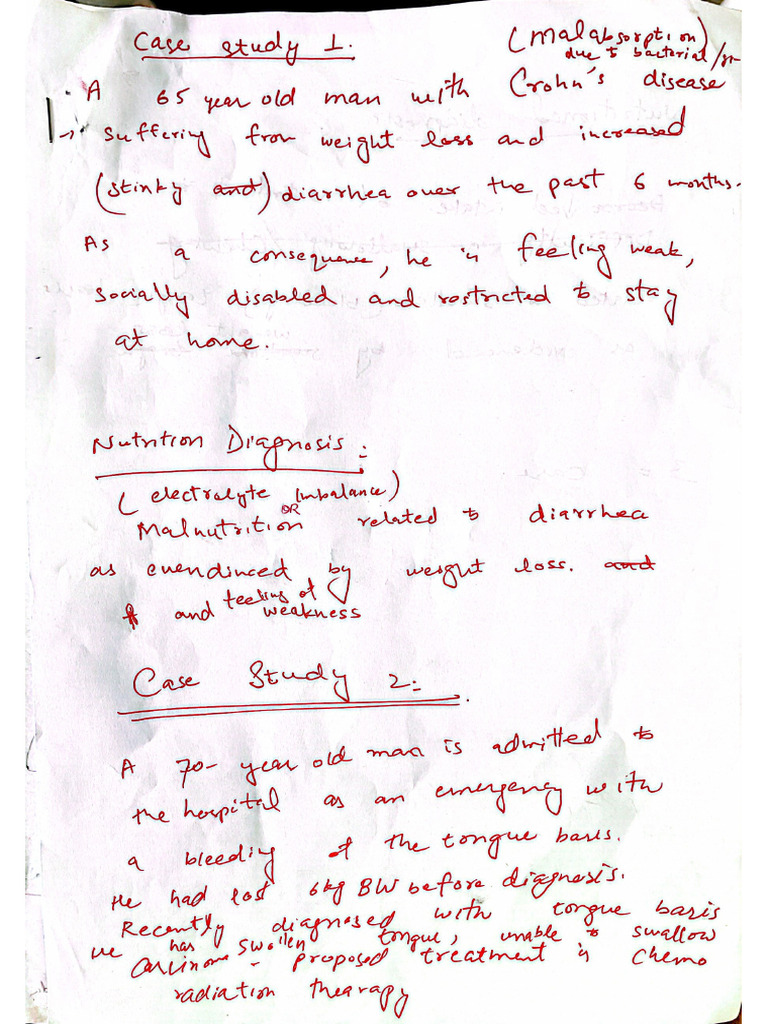 Case study 1.
(Malabsorption)
due to bacterial
A 65 year old man with Crohn's disease
→ suffering from weight loss and increased
(stinky and) diarrhea over the past 6 months.
As a consequence, he is feeling weak,
socially disabled and rostricted to stay
at home.
Nutrition Diagnosis:
(electrolyte imbalance)
OR
Malnutrition related to diarrhea
as evendinced by weight loss. and
and feeling of weakness
Case Study 2:
A 70-year old man is admitted to
the hospital as an emergency with
a bleediy of the tongue basis.
He had lost 6kg BW before diagnosis.
Recently diagnosed with tongue basis
He has swollen tongue, unable to swallow
Carcinoma - proposed treatment is chemo
radiation thearapy